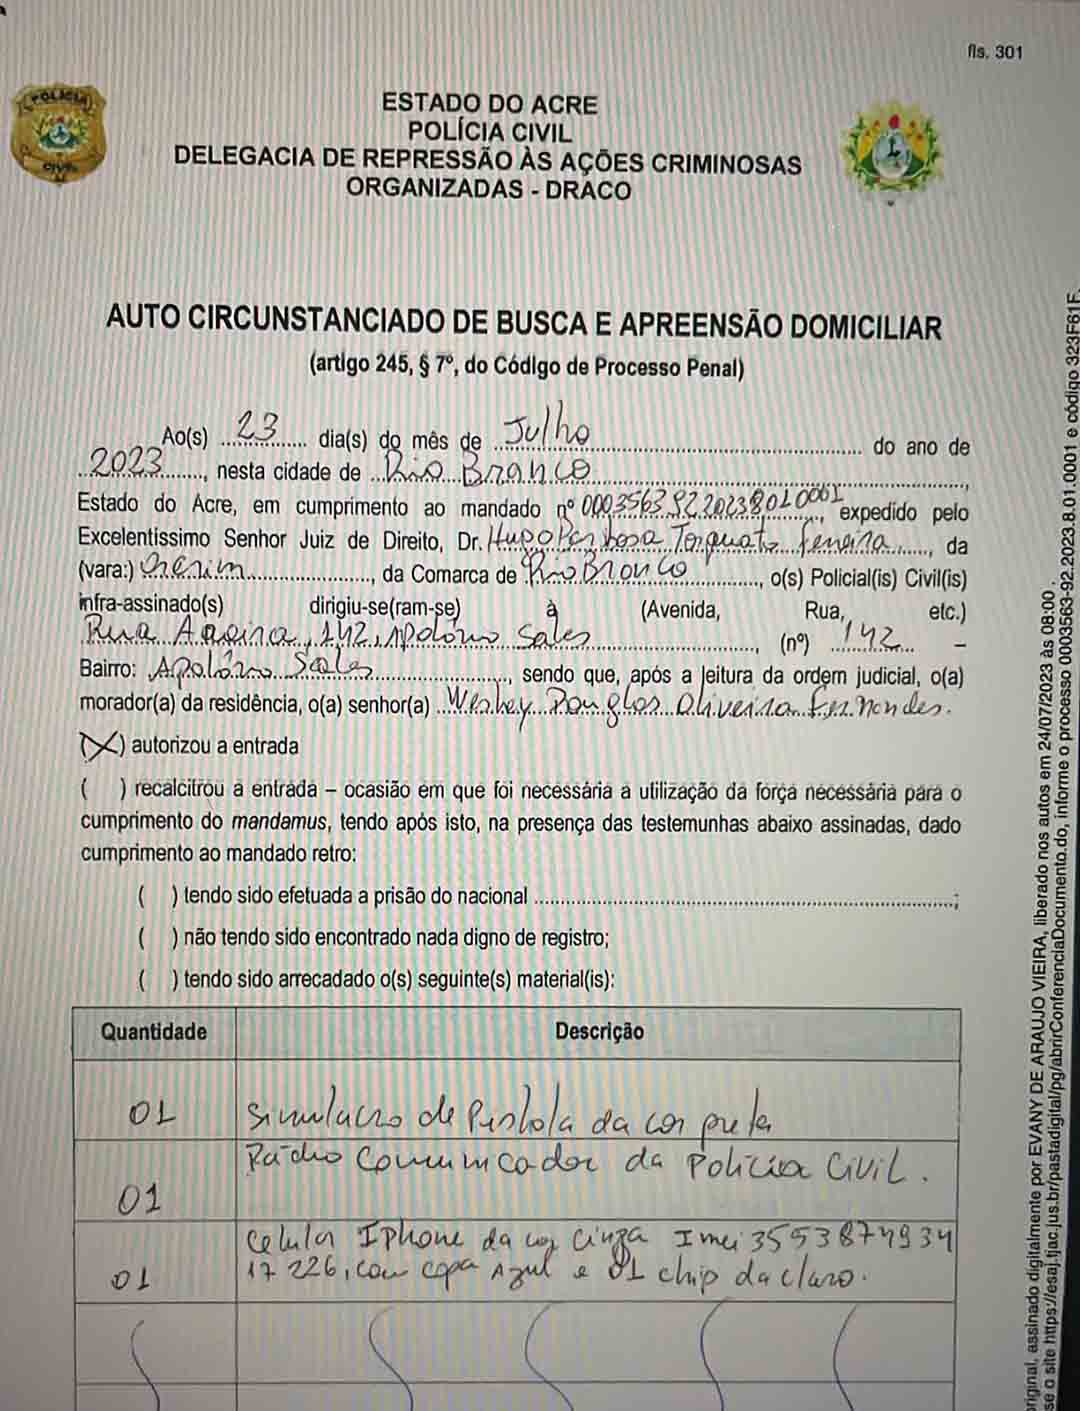 fls. 301
POLÍCIA
CIVIL
ESTADO DO ACRE
POLÍCIA CIVIL
DELEGACIA DE REPRESSÃO ÀS AÇÕES CRIMINOSAS
ORGANIZADAS - DRACO
AUTO CIRCUNSTANCIADO DE BUSCA E APREENSÃO DOMICILIAR
(artigo 245, § 7º, do Código de Processo Penal)
Ao(s) 23 dia(s) do mês de Julho do ano de
2023, nesta cidade de Rio Branco,
Estado do Acre, em cumprimento ao mandado nº 00035639220238010001, expedido pelo
Excelentíssimo Senhor Juiz de Direito, Dr. Hugo Barbosa Torquato Ferreira, da
(vara:), da Comarca de Rio Branco, o(s) Policial(is) Civil(is)
infra-assinado(s) dirigiu-se(ram-se) à (Avenida, Rua, etc.)
Rua, 142, Apolônio Sales, (nº) 142 –
Bairro: Apolônio Sales, sendo que, após a leitura da ordem judicial, o(a)
morador(a) da residência, o(a) senhor(a) Wesley Douglas Oliveira Fernandes.
(X) autorizou a entrada
( ) recalcitrou a entrada – ocasião em que foi necessária a utilização da força necessária para o
cumprimento do mandamus, tendo após isto, na presença das testemunhas abaixo assinadas, dado
cumprimento ao mandado retro:
( ) tendo sido efetuada a prisão do nacional ;
( ) não tendo sido encontrado nada digno de registro;
( ) tendo sido arrecadado o(s) seguinte(s) material(is):
Quantidade Descrição
01 Simulacro de Pistola da cor preta
01 Rádio Comunicador da Polícia Civil.
01 Celular Iphone da cor cinza Imei 3553874934
17 226, com capa Azul e 01 chip da claro.
original, assinado digitalmente por EVANY DE ARAUJO VIEIRA, liberado nos autos em 24/07/2023 às 08:00 .
se o site https://esaj.tjac.jus.br/pastadigital/pg/abrirConferenciaDocumento.do, informe o processo 0003563-92.2023.8.01.0001 e código 323F61F.